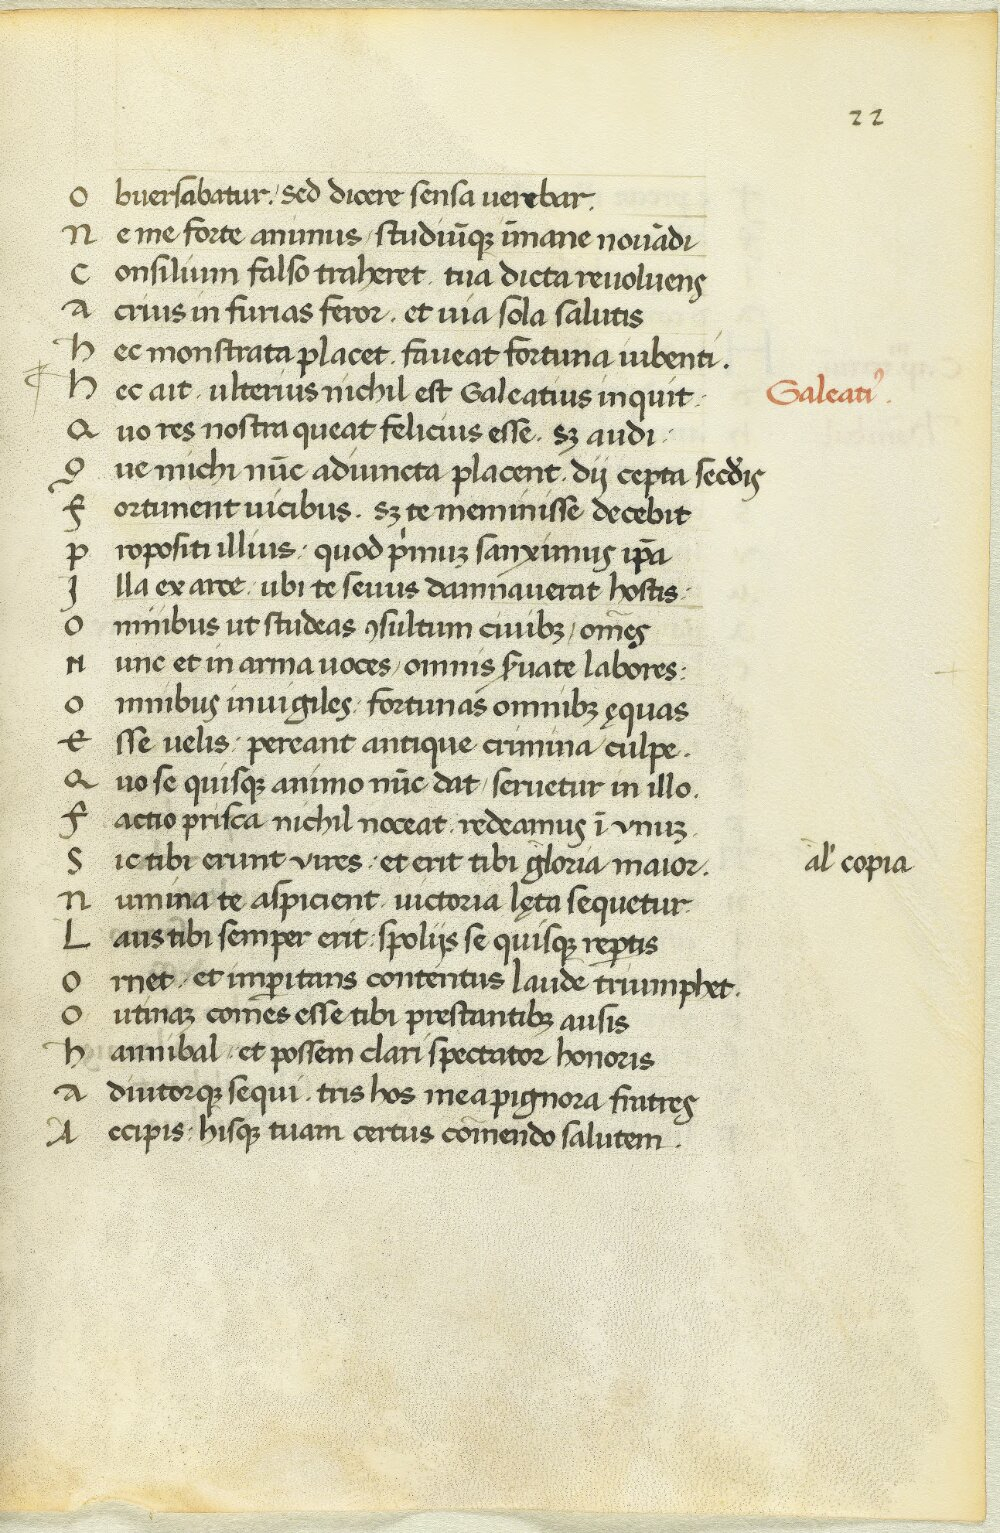 22
O buersabatur. sed dicere sensa uerebar.
N e me forte animus / studiūqꝫ īmane nouādi
C onsilium falso traheret. tua dicta reuoluens
A crius in furias feror. et uia sola salutis
H ec monstrata placet. faueat fortuna iubenti.
H ec ait. ulterius nichil est Galeatius inquit.
Galeatiꝰ.
Q uo res nostra queat felicius esse. sꝫ audi.
Q ue michi nūc adiuncta placent. dij cepta secd̄is
F ortunent uicibus. sꝫ te meminisse decebit
P ropositi illius. quod pͥmuꝫ sanximus ip̄a
I lla ex arce. ubi te seuus damnauerat hostis.
O mnibus ut studeas ꝯsultum ciuibꝫ / om̄es
N unc et in arma uoces / omnis ẜuate labores:
O mnibus inuigiles. fortunas omnibꝫ ęquas
E sse uelis. pereant antique crimina culpe.
Q uo se quisqꝫ animo nūc dat / seruetur in illo.
F actio prisca nichil noceat. redeamus ī vnuꝫ.
S ic tibi erunt vires. et erit tibi gloria maior.
al' copia
N umina te aspicient. uictoria lęta sequetur.
L aus tibi semper erit. spolijs se quisqꝫ rep̄tis
O rnet. et imꝑitans contentus laude triumphet.
O utinaꝫ com̄es esse tibi prestantibꝫ ausis
H annibal. et possem clari spectator honoris
A diutorqꝫ sequi. tris hos mea pignora fratres
A ccipis. hisqꝫ tuam certus com̄endo salutem.